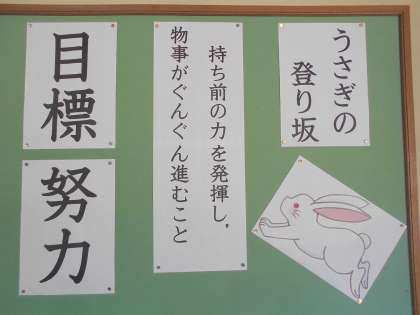 うさぎの
登り坂
持ち前の力を発揮し,
物事がぐんぐん進むこと
目標
努力